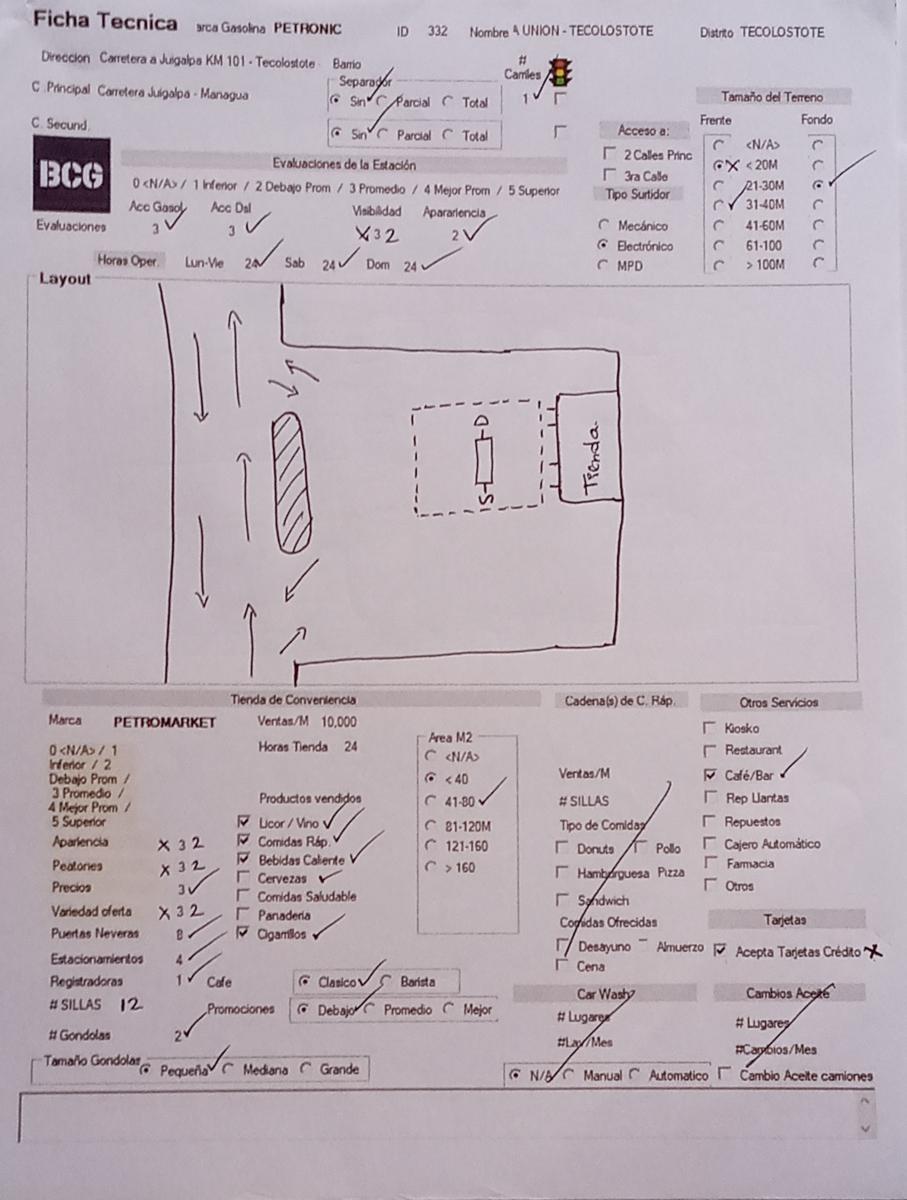 Ficha Tecnica arca Gasolina PETRONIC ID 332 Nombre A UNION - TECOLOSTOTE Distrito TECOLOSTOTE
Direccion Carretera a Juigalpa KM 101 - Tecolostote Barrio # Carriles
C. Principal Carretera Juigalpa - Managua Separador
Sin Parcial Total 1
C. Secund. Sin Parcial Total
Tamaño del Terreno
Frente Fondo
<N/A>
< 20M
21-30M
31-40M
41-60M
61-100
> 100M
Acceso a:
2 Calles Princ
3ra Calle
Tipo Surtidor
Mecánico
Electrónico
MPD
BCG
Evaluaciones de la Estación
0 <N/A> / 1 Inferior / 2 Debajo Prom / 3 Promedio / 4 Mejor Prom / 5 Superior
Acc Gasol Acc Dsl Visibilidad Aparariencia
Evaluaciones 3 3 3 2 2
Horas Oper. Lun-Vie 24 Sab 24 Dom 24
Layout
D
S
Tienda
Tienda de Conveniencia
Marca PETROMARKET Ventas/M 10,000
Horas Tienda 24
0 <N/A> / 1
Inferior / 2
Debajo Prom /
3 Promedio /
4 Mejor Prom /
5 Superior
Apariencia X 3 2
Peatones X 3 2
Precios 3
Variedad oferta X 3 2
Puertas Neveras 8
Estacionamientos 4
Registradoras 1
# SILLAS 12
# Gondolas 2
Productos vendidos
Licor / Vino
Comidas Ráp.
Bebidas Caliente
Cervezas
Comidas Saludable
Panaderia
Cigarrillos
Cafe Clasico Barista
Promociones Debajo Promedio Mejor
Tamaño Gondolas Pequeña Mediana Grande
Area M2
<N/A>
< 40
41-80
81-120M
121-160
> 160
Cadena(s) de C. Ráp.
Ventas/M
# SILLAS
Tipo de Comidas
Donuts Pollo
Hamburguesa Pizza
Sandwich
Comidas Ofrecidas
Desayuno Almuerzo
Cena
Car Wash
# Lugares
#Lav/Mes
N/A Manual Automatico
Otros Servicios
Kiosko
Restaurant
Café/Bar
Rep Llantas
Repuestos
Cajero Automático
Farmacia
Otros
Tarjetas
Acepta Tarjetas Crédito X
Cambios Aceite
# Lugares
#Cambios/Mes
Cambio Aceite camiones